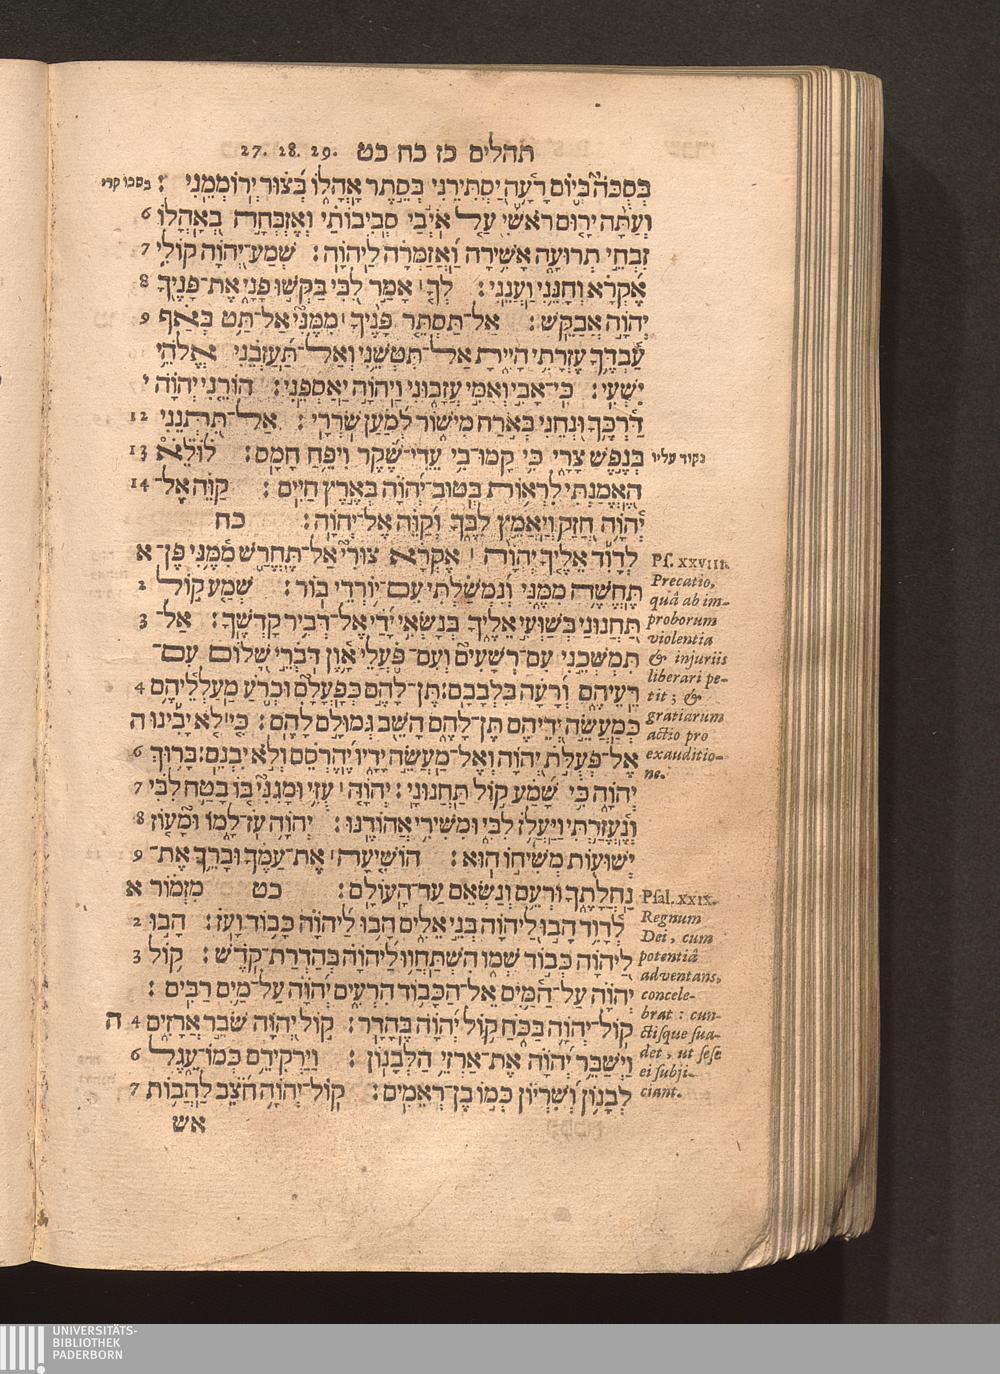 תהלים כז כח כט 27. 28. 29.
בְּסֻכֹּה בְּיוֹם רָעָה יַסְתִּירֵנִי בְּסֵתֶר אָהֳלוֹ בְּצוּר יְרוֹמְמֵנִי : בסכו קרי
וְעַתָּה יָרוּם רֹאשִׁי עַל אֹיְבַי סְבִיבוֹתַי וְאֶזְבְּחָה בְאָהֳלוֹ 6
זִבְחֵי תְרוּעָה אָשִׁירָה וַאֲזַמְּרָה לַיהוָה : שְׁמַע־יְהוָה קוֹלִי 7
אֶקְרָא וְחָנֵּנִי וַעֲנֵנִי : לְךָ ׀ אָמַר לִבִּי בַּקְּשׁוּ פָנָי אֶת־פָּנֶיךָ 8
יְהוָה אֲבַקֵּשׁ : אַל־תַּסְתֵּר פָּנֶיךָ ׀ מִמֶּנִּי אַל־תַּט בְּאַף 9
עַבְדֶּךָ עֶזְרָתִי הָיִיתָ אַל־תִּטְּשֵׁנִי וְאַל־תַּעַזְבֵנִי אֱלֹהֵי
יִשְׁעִי : כִּי־אָבִי וְאִמִּי עֲזָבוּנִי וַיהוָה יַאַסְפֵנִי : הוֹרֵנִי יְהוָה י
דַּרְכֶּךָ וּנְחֵנִי בְּאֹרַח מִישׁוֹר לְמַעַן שֹׁרְרָי : אַל־תִּתְּנֵנִי 12
נקוד עליו בְּנֶפֶשׁ צָרָי כִּי קָמוּ־בִי עֵדֵי־שֶׁקֶר וִיפֵחַ חָמָס : לוּלֵא 13
הֶאֱמַנְתִּי לִרְאוֹת בְּטוּב־יְהוָה בְּאֶרֶץ חַיִּים : קַוֵּה אֶל־ 14
יְהוָה חֲזַק וְיַאֲמֵץ לִבֶּךָ וְקַוֵּה אֶל־יְהוָה : כח
לְדָוִד אֵלֶיךָ יְהוָה ׀ אֶקְרָא צוּרִי אַל־תֶּחֱרַשׁ מִמֶּנִּי פֶּן־ א
תֶּחֱשֶׁה מִמֶּנִּי וְנִמְשַׁלְתִּי עִם־יוֹרְדֵי בוֹר : שְׁמַע קוֹל 2
תַּחֲנוּנַי בְּשַׁוְּעִי אֵלֶיךָ בְּנָשְׂאִי יָדַי אֶל־דְּבִיר קָדְשֶׁךָ : אַל־ 3
תִּמְשְׁכֵנִי עִם־רְשָׁעִים וְעִם־פֹּעֲלֵי אָוֶן דֹּבְרֵי שָׁלוֹם עִם־
רֵעֵיהֶם וְרָעָה בִּלְבָבָם : תֶּן־לָהֶם כְּפָעֳלָם וּכְרֹעַ מַעַלְלֵיהֶם 4
כְּמַעֲשֵׂה יְדֵיהֶם תֵּן־לָהֶם הָשֵׁב גְּמוּלָם לָהֶם : כִּי לֹא יָבִינוּ ה
אֶל־פְּעֻלֹּת יְהוָה וְאֶל־מַעֲשֵׂה יָדָיו יֶהֶרְסֵם וְלֹא יִבְנֵם : בָּרוּךְ 6
יְהוָה כִּי שָׁמַע קוֹל תַּחֲנוּנָי : יְהוָה ׀ עֻזִּי וּמָגִנִּי בּוֹ בָטַח לִבִּי 7
וְנֶעֱזָרְתִּי וַיַּעֲלֹז לִבִּי וּמִשִּׁירִי אֲהוֹדֶנּוּ : יְהוָה עֹז־לָמוֹ וּמָעוֹז 8
יְשׁוּעוֹת מְשִׁיחוֹ הוּא : הוֹשִׁיעָה ׀ אֶת־עַמֶּךָ וּבָרֵךְ אֶת־ 9
נַחֲלָתֶךָ וּרְעֵם וְנַשְּׂאֵם עַד־הָעוֹלָם : כט מִזְמוֹר א
לְדָוִד הָבוּ לַיהוָה בְּנֵי אֵלִים הָבוּ לַיהוָה כָּבוֹד וָעֹז : הָבוּ 2
לַיהוָה כְּבוֹד שְׁמוֹ הִשְׁתַּחֲווּ לַיהוָה בְּהַדְרַת־קֹדֶשׁ : קוֹל 3
יְהוָה עַל־הַמָּיִם אֵל־הַכָּבוֹד הִרְעִים יְהוָה עַל־מַיִם רַבִּים :
קוֹל־יְהוָה בַּכֹּחַ קוֹל יְהוָה בֶּהָדָר : קוֹל יְהוָה שֹׁבֵר אֲרָזִים 4 ה
וַיְשַׁבֵּר יְהוָה אֶת־אַרְזֵי הַלְּבָנוֹן : וַיַּרְקִידֵם כְּמוֹ־עֵגֶל 6
לְבָנוֹן וְשִׂרְיוֹן כְּמוֹ בֶן־רְאֵמִים : קוֹל־יְהוָה חֹצֵב לַהֲבוֹת 7
אש
Ps. XXVIII.
Precatio,
quâ ab im-
proborum
violentia
& injuriis
liberari pe-
tit ; &
gratiarum
actio pro
exauditio-
ne.
Psal. XXIX.
Regnum
Dei, cum
potentiâ
adventans,
concele-
brat : cun-
ctisque sua-
det, ut sese
ei subji-
ciant.
UNIVERSITÄTS-
BIBLIOTHEK
PADERBORN